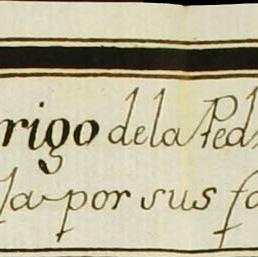 rigo de la Ped
la por sus fa